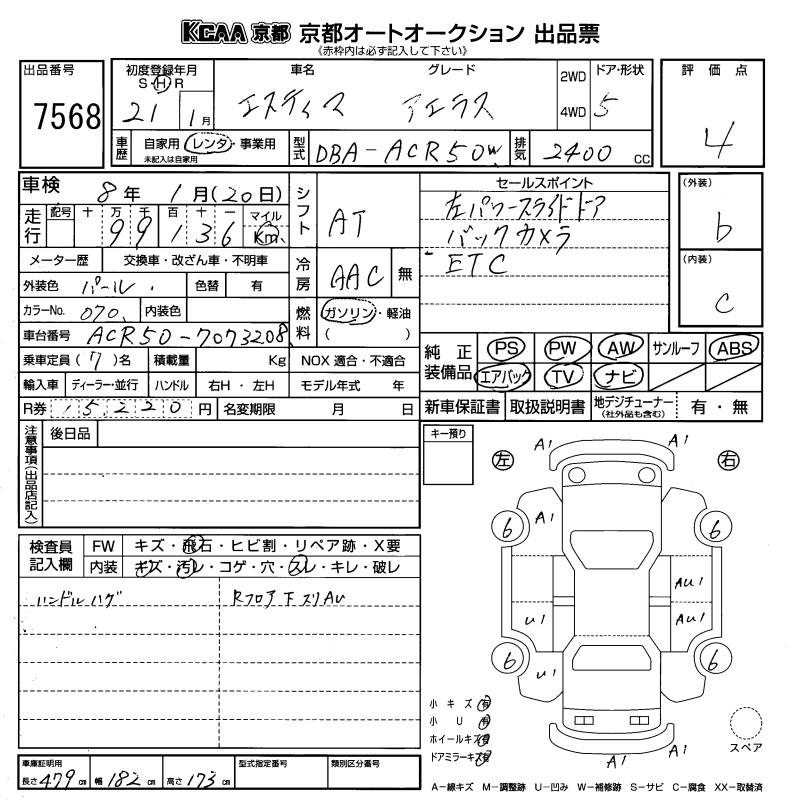 KCAA 京都 京都オートオークション 出品票
《赤枠内は必ず記入して下さい》
出品番号
7568
初度登録年月
S・H・R
21 1月
車名
エスティマ
グレード
アエラス
2WD
4WD
ドア・形状
5
評価点
4
車歴
自家用・レンタ・事業用
未記入は自家用
型式
DBA-ACR50W
排気
2400 CC
車検 8年 1月(20日)
走行
記号 十 万 千 百 十 一 マイル
99136 Km
メーター歴 交換車・改ざん車・不明車
外装色 パール 色替 有
カラーNo. 070 内装色
車台番号 ACR50-7073208
乗車定員(7)名 積載量 Kg NOX 適合・不適合
輸入車 ディーラー・並行 ハンドル 右H・左H モデル年式 年
R券 15220円 名変期限 月 日
シフト AT
冷房 AAC 無
燃料 ガソリン・軽油
( )
セールスポイント
左パワースライドドア
バックカメラ
ETC
(外装)
b
(内装)
c
純正装備品
PS PW AW サンルーフ ABS
エアバック TV ナビ
新車保証書 取扱説明書 地デジチューナー 有・無
(社外品も含む)
注意事項(出品店記入)
後日品
キー預り
検査員記入欄
FW キズ・飛石・ヒビ割・リペア跡・X要
内装 キズ・汚レ・コゲ・穴・スレ・キレ・破レ
ハンドルハゲ
Rフロア下ズリAU
左 右
A1 A1
A1
6 6
AU1
U1 AU1
6 6
U1
A1 A1
小キズ 有
小U 有
ホイールキズ 有
ドアミラーキズ 有
スペア
車庫証明用
長さ479cm 幅182cm 高さ173cm
型式指定番号
類別区分番号
A-線キズ M-調整跡 U-凹み W-補修跡 S-サビ C-腐食 XX-取替済